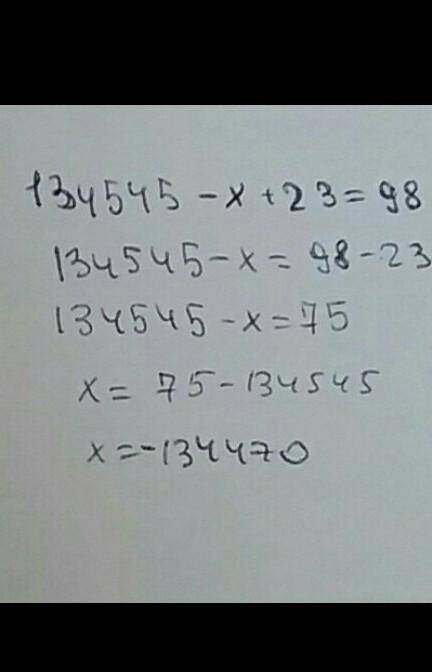 134545 - x + 23 = 98
134545 - x = 98 - 23
134545 - x = 75
x = 75 - 134545
x = -134470